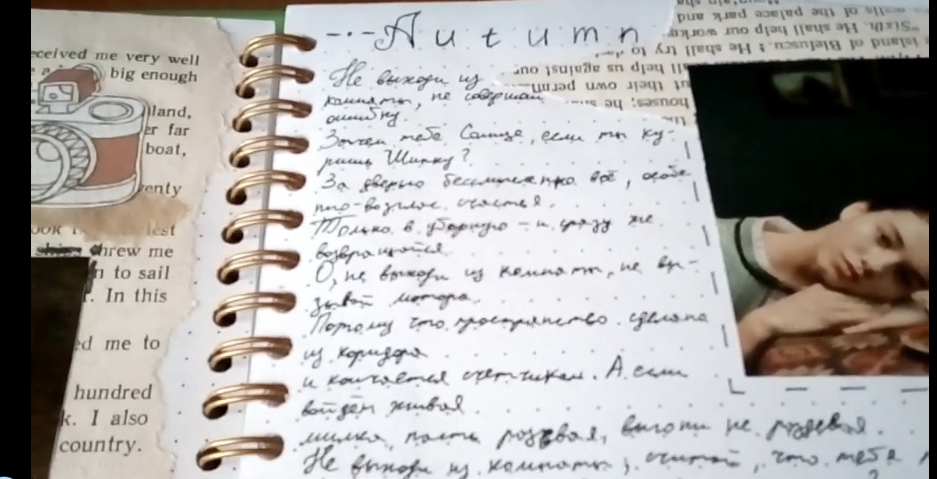 ceived me very well
big enough
land,
er far
boat,
enty
threw me
n to sail
. In this
ed me to
hundred
k. I also
country.
--·--Autumn
Не выходи из
комнаты, не совершай
ошибку.
Зачем тебе Солнце, если ты ку-
ришь Шипку?
За дверью бессмысленно всё, особе
нно-возглас счастья.
Только в уборную - и сразу же
возвращайся.
О, не выходи из комнаты, не вы-
зывай мотора.
Потому что пространство сделано
из коридора
и кончается счетчиком. А если
войдёт живая
милка, пасть розевая, выгони не роздевая.
Не выходи из комнаты, считай, что тебя
cells of the palace park and
"Sixth. He shall help our work
island of Blefuscu.; He shall try to
ll help us against our
t their own permi
houses; he s